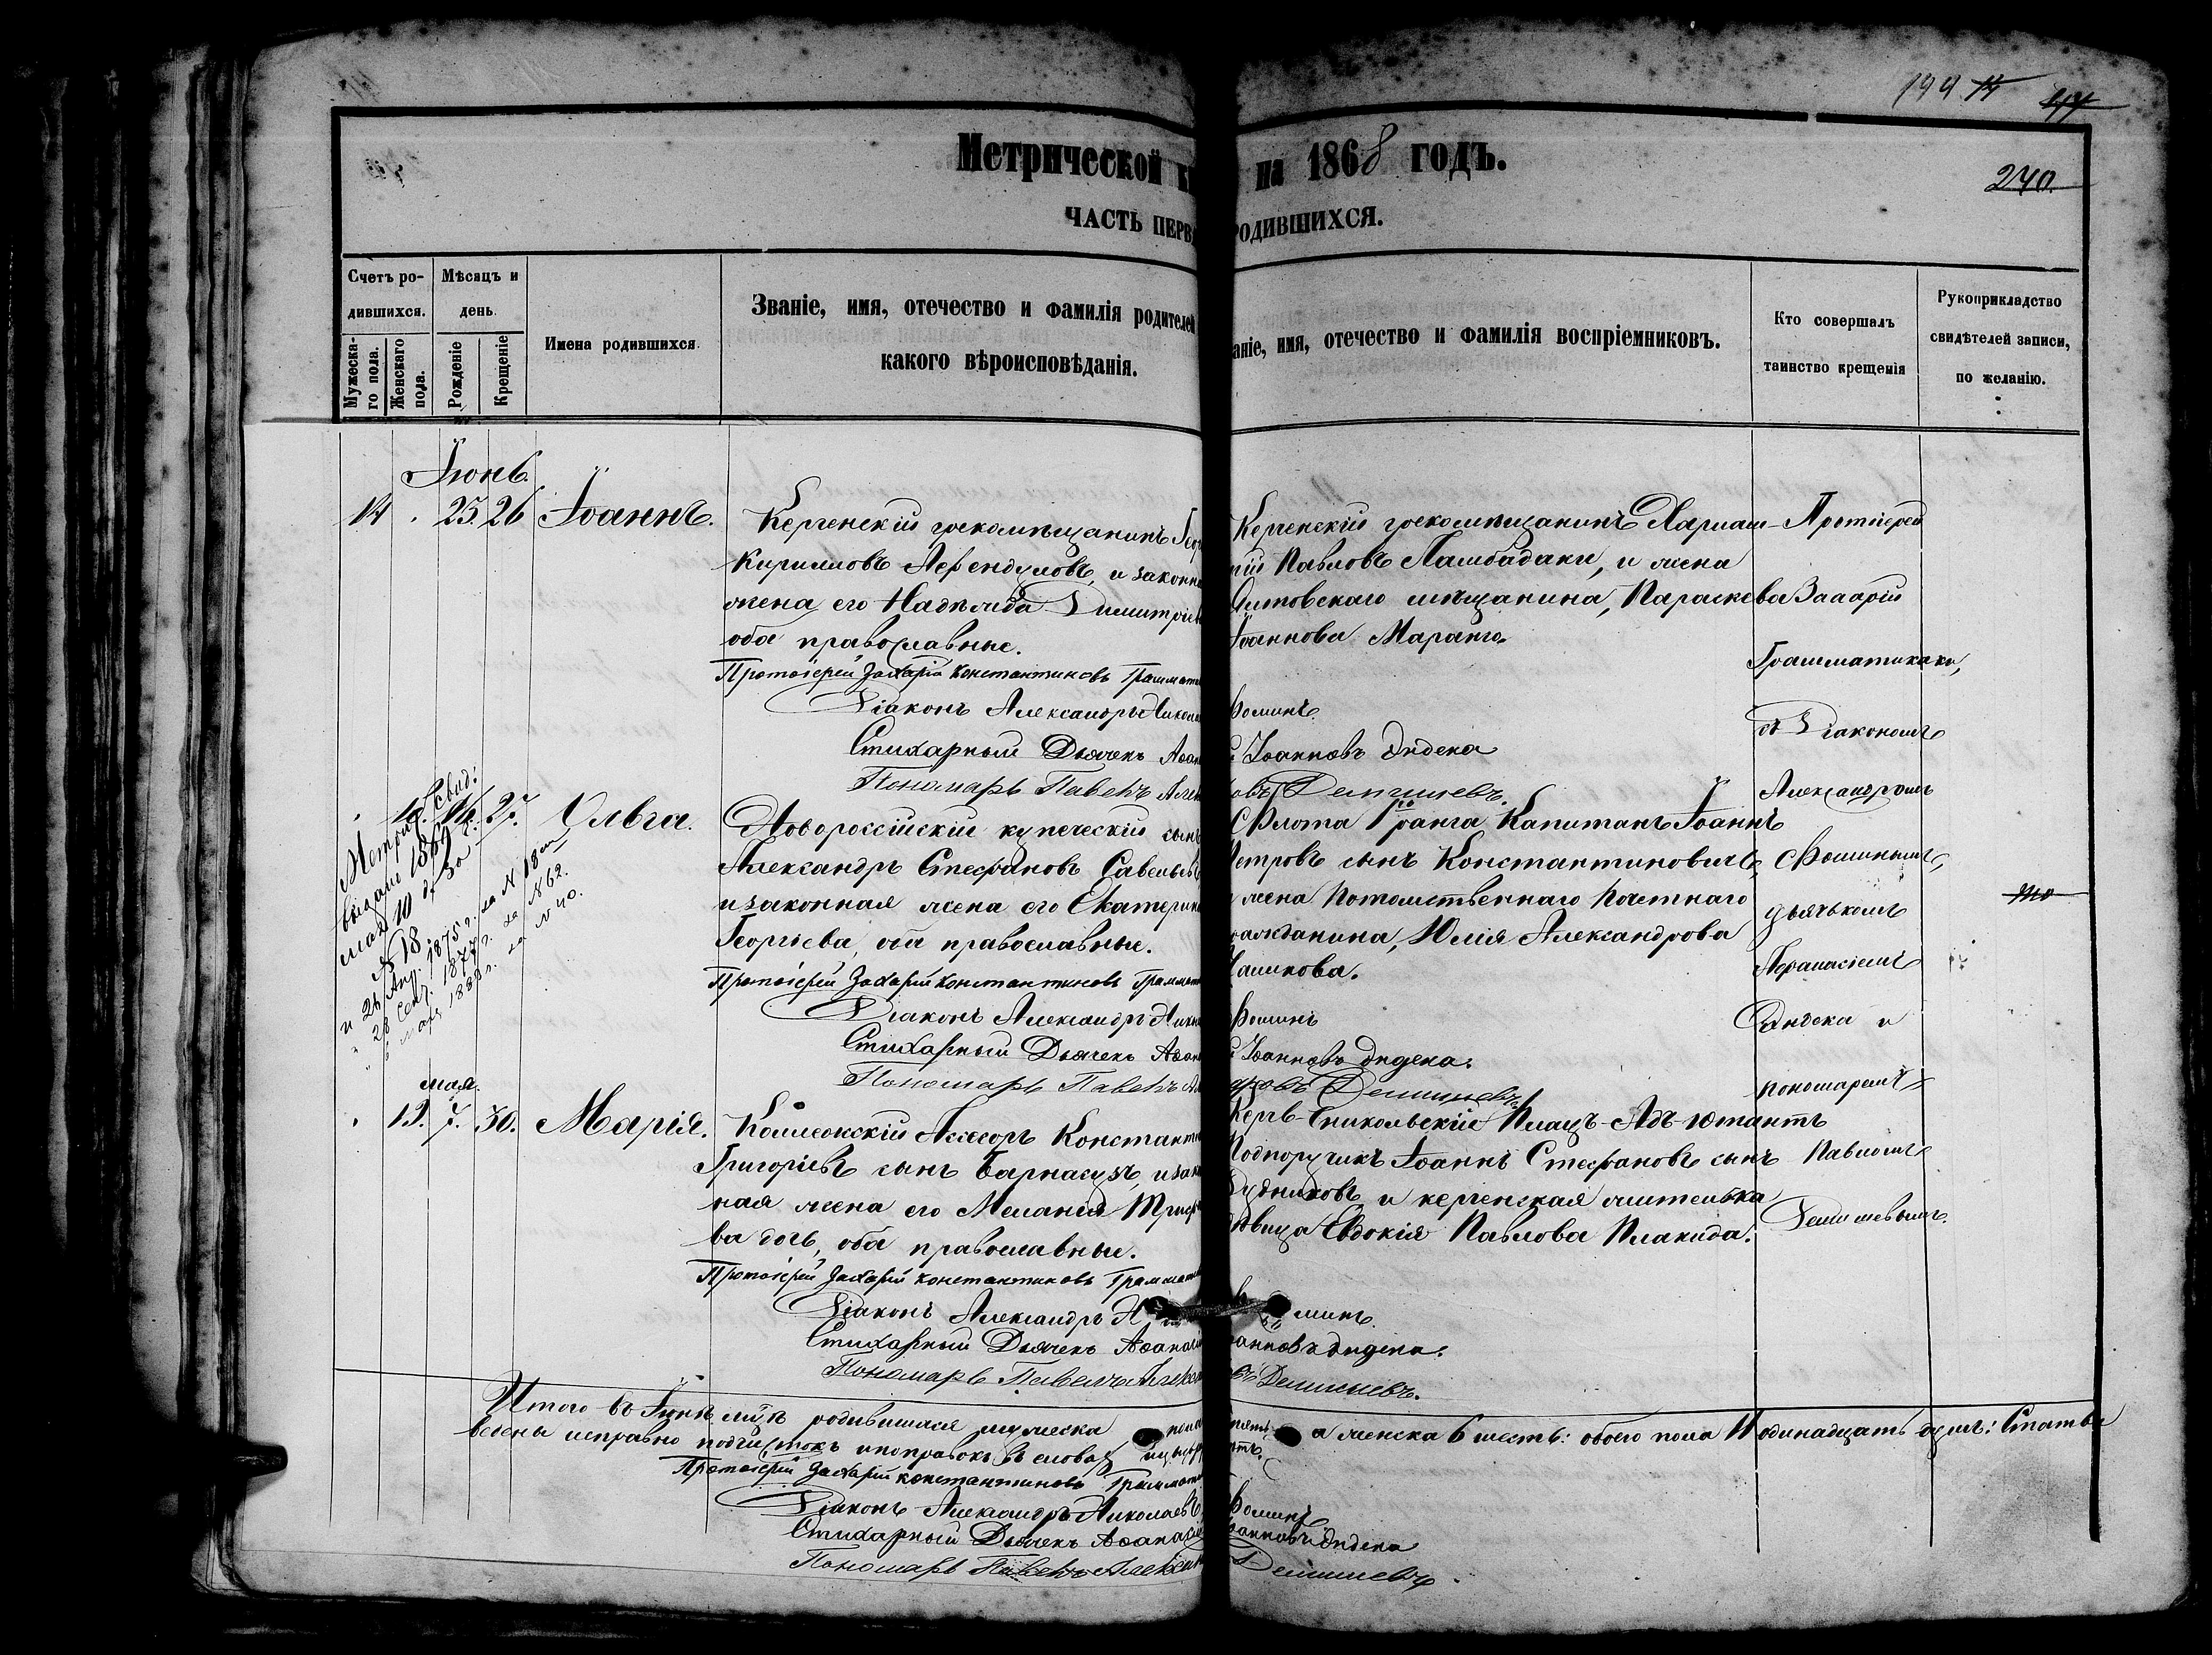 199 14 47
240.
Метрической к
на 1868 годъ.
ЧАСТЬ ПЕРВ
РОДИВШИХСЯ.
Счетъ родившихся.
Мужескаго пола.
Женскаго пола.
Мѣсяцъ и день.
Рожденіе
Крещеніе
Имена родившихся.
Званіе, имя, отечество и фамилія родителей
какого вѣроисповѣданія.
аніе, имя, отечество и фамилія воспріемниковъ.
Кто совершалъ
таинство крещенія
Рукоприкладство
свидѣтелей записи,
по желанію.
Іюнь.
14 . 25. 26 Іоаннъ.
Керченскій грекомѣщанинъ Геор
Кирилловъ Аѳендуловъ, и законн
жена его Надѣжда Димитріев
оба православные.
Протоіерей Захарій Константиновъ Граммат
Діаконъ Александръ Никола
Стихарный Дьячекъ Аѳан
Пономарь Павелъ Алек
Керченскій грекомѣщанинъ Харлам-
пій Павловъ Памбадаки, и жена
Ялтовскаго мѣщанина, Параскева
Іоаннова Маранго.
Ѳоминъ.
Іоанновъ Диденко
овъ Демишевъ.
Протоіерей
Захарій
Грамматикаки,
съ Діакономъ
Александромъ
Ѳоминымъ,
дьячькомъ
Аѳанасіемъ
Диденко и
пономаремъ
Павломъ
Демишевымъ.
. 10. 14. 27. Ольга.
Метрич. Свид:
выдано 1869 г.
мая 10 д. за
№ 18
и 26 Апр. 1875 г. за № 18
" 28 Сент. 1877 г. за № 62.
" 6 Мар. 1888 г. за № 40.
Новороссійскій купеческій сынъ
Александръ Стефановъ Савельев
и законная жена его Екатерин
Георгіева, оба православные.
Протоіерей Захарій Константиновъ Граммат
Діаконъ Александръ Никол
Стихарный Дьячекъ Аѳан
Пономарь Павелъ Ал
Флота 1го ранга Капитанъ Іоаннъ
Петровъ сынъ Константиновичъ,
и жена Потомственнаго Почетнаго
гражданина, Юлія Александрова
Ѳоминъ
Іоанновъ Диденко.
Демишевъ
мая.
. 12. 7. 30. Марія.
Коллежскій Ассесоръ Константи
Григорьевъ сынъ Барнасузъ, и зак
ная жена его Меланія Триф
ва дочь, оба православные.
Протоіерей Захарій Константиновъ Граммат
Діаконъ Александръ Н
Стихарный Дьячекъ Аѳанасі
Пономарь Павелъ Алек
Керчь-Еникольскій Плацъ-Адъ-ютантъ
Подпоручикъ Іоаннъ Стефановъ сынъ
Будниковъ и керченская жителька
дѣвица Евдокія Павлова Плакида.
минъ.
анновъ Диденко.
Демишевъ.
Итого въ Іюнѣ мцѣ родившихся мужеска пола пять, а женска 6 шесть: обоего пола 11 одинадцать душъ: Статьи
ведены исправно подчистокъ и поправокъ въ словахъ и цыфр нѣтъ.
Протоіерей Захарій Константиновъ Граммат
Діаконъ Александръ Николаевъ Ѳоминъ
Стихарный Дьячекъ Аѳанасі Іоанновъ Диденко
Пономарь Павелъ Алексан Демишевъ.